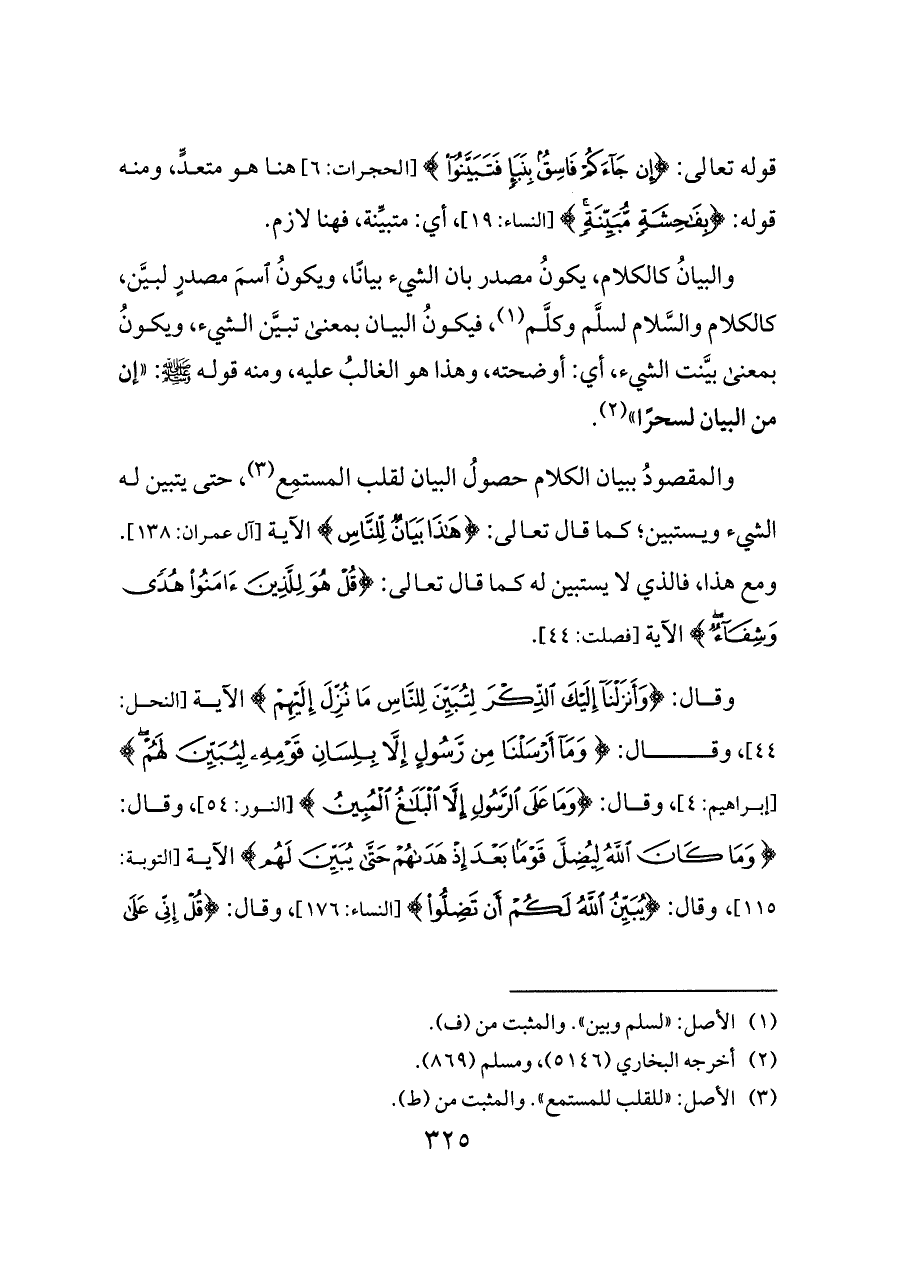 قوله تعالى: ﴿إِن جَآءَكُمْ فَاسِقٌۢ بِنَبَإٍ فَتَبَيَّنُوٓا۟ ﴾ [الحجرات: ٦] هنا هو متعدٍّ، ومنه
قوله: ﴿بِفَٰحِشَةٍ مُّبَيِّنَةٍۚ ﴾ [النساء: ١٩]، أي: متبيِّنة، فهنا لازم.
والبيانُ كالكلام، يكونُ مصدر بان الشيء بيانًا، ويكونُ ٱسمَ مصدرٍ لبيَّن،
كالكلام والسَّلام لسلَّم وكلَّم(١)، فيكونُ البيان بمعنىٰ تبيَّن الشيء، ويكونُ
بمعنىٰ بيَّنت الشيء، أي: أوضحته، وهذا هو الغالبُ عليه، ومنه قوله ﷺ: «إن
من البيان لسحرًا»(٢).
والمقصودُ ببيان الكلام حصولُ البيان لقلب المستمِع(٣)، حتى يتبين له
الشيء ويستبين؛ كما قال تعالى: ﴿هَٰذَا بَيَانٌ لِّلنَّاسِ ﴾ الآية [آل عمران: ١٣٨].
ومع هذا، فالذي لا يستبين له كما قال تعالى: ﴿قُلْ هُوَ لِلَّذِينَ ءَامَنُوا۟ هُدًى
وَشِفَآءٌۖ ﴾ الآية [فصلت: ٤٤].
وقال: ﴿وَأَنزَلْنَآ إِلَيْكَ ٱلذِّكْرَ لِتُبَيِّنَ لِلنَّاسِ مَا نُزِّلَ إِلَيْهِمْ ﴾ الآية [النحل:
٤٤]، وقال: ﴿ وَمَآ أَرْسَلْنَا مِن رَّسُولٍ إِلَّا بِلِسَانِ قَوْمِهِۦ لِيُبَيِّنَ لَهُمْۖ ﴾
[إبراهيم: ٤]، وقال: ﴿وَمَا عَلَى ٱلرَّسُولِ إِلَّا ٱلْبَلَٰغُ ٱلْمُبِينُ ﴾ [النور: ٥٤]، وقال:
﴿ وَمَا كَانَ ٱللَّهُ لِيُضِلَّ قَوْمًۢا بَعْدَ إِذْ هَدَىٰهُمْ حَتَّىٰ يُبَيِّنَ لَهُم ﴾ الآية [التوبة:
١١٥]، وقال: ﴿يُبَيِّنُ ٱللَّهُ لَكُمْ أَن تَضِلُّوا۟ ﴾ [النساء: ١٧٦]، وقال: ﴿قُلْ إِنِّى عَلَىٰ
(١) الأصل: «لسلم وبين». والمثبت من (ف).
(٢) أخرجه البخاري (٥١٤٦)، ومسلم (٨٦٩).
(٣) الأصل: «للقلب للمستمع». والمثبت من (ط).
٣٢٥